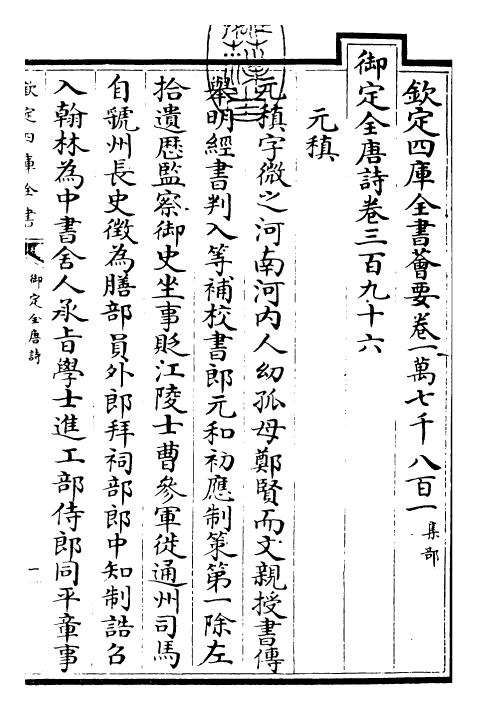 欽定四庫全書薈要卷一萬七千八百一 集部
御定全唐詩卷三百九十六
元稹
元稹字微之河南河內人幼孤母鄭賢而文親授書傳
舉明經書判入等補校書郎元和初應制策第一除左
拾遺歴監察御史坐事貶江陵士曹參軍徙通州司馬
自虢州長史徴為膳部員外郎拜祠部郎中知制誥召
入翰林為中書舍人承旨學士進工部侍郎同平章事
欽定四庫全書
御定全唐詩
一